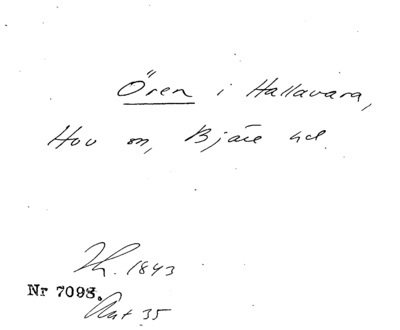 Ören i Hallavara,
Hov sn, Bjäre hd.
Th. 1843
Nr 7098.
Ant 35